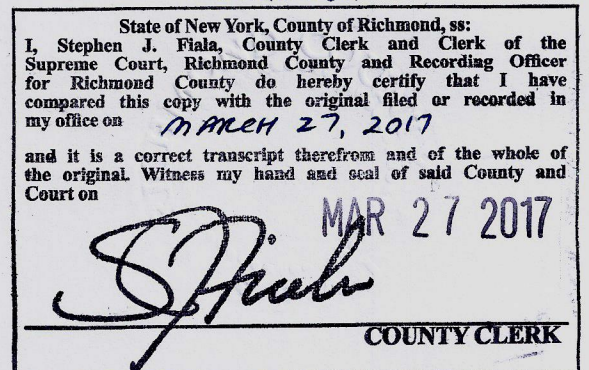 State of New York, County of Richmond, ss:
I, Stephen J. Fiala, County Clerk and Clerk of the
Supreme Court, Richmond County and Recording Officer
for Richmond County do hereby certify that I have
compared this copy with the original filed or recorded in
my office on MARCH 27, 2017
and it is a correct transcript therefrom and of the whole of
the original. Witness my hand and seal of said County and
Court on
MAR 27 2017
S Fiala
COUNTY CLERK